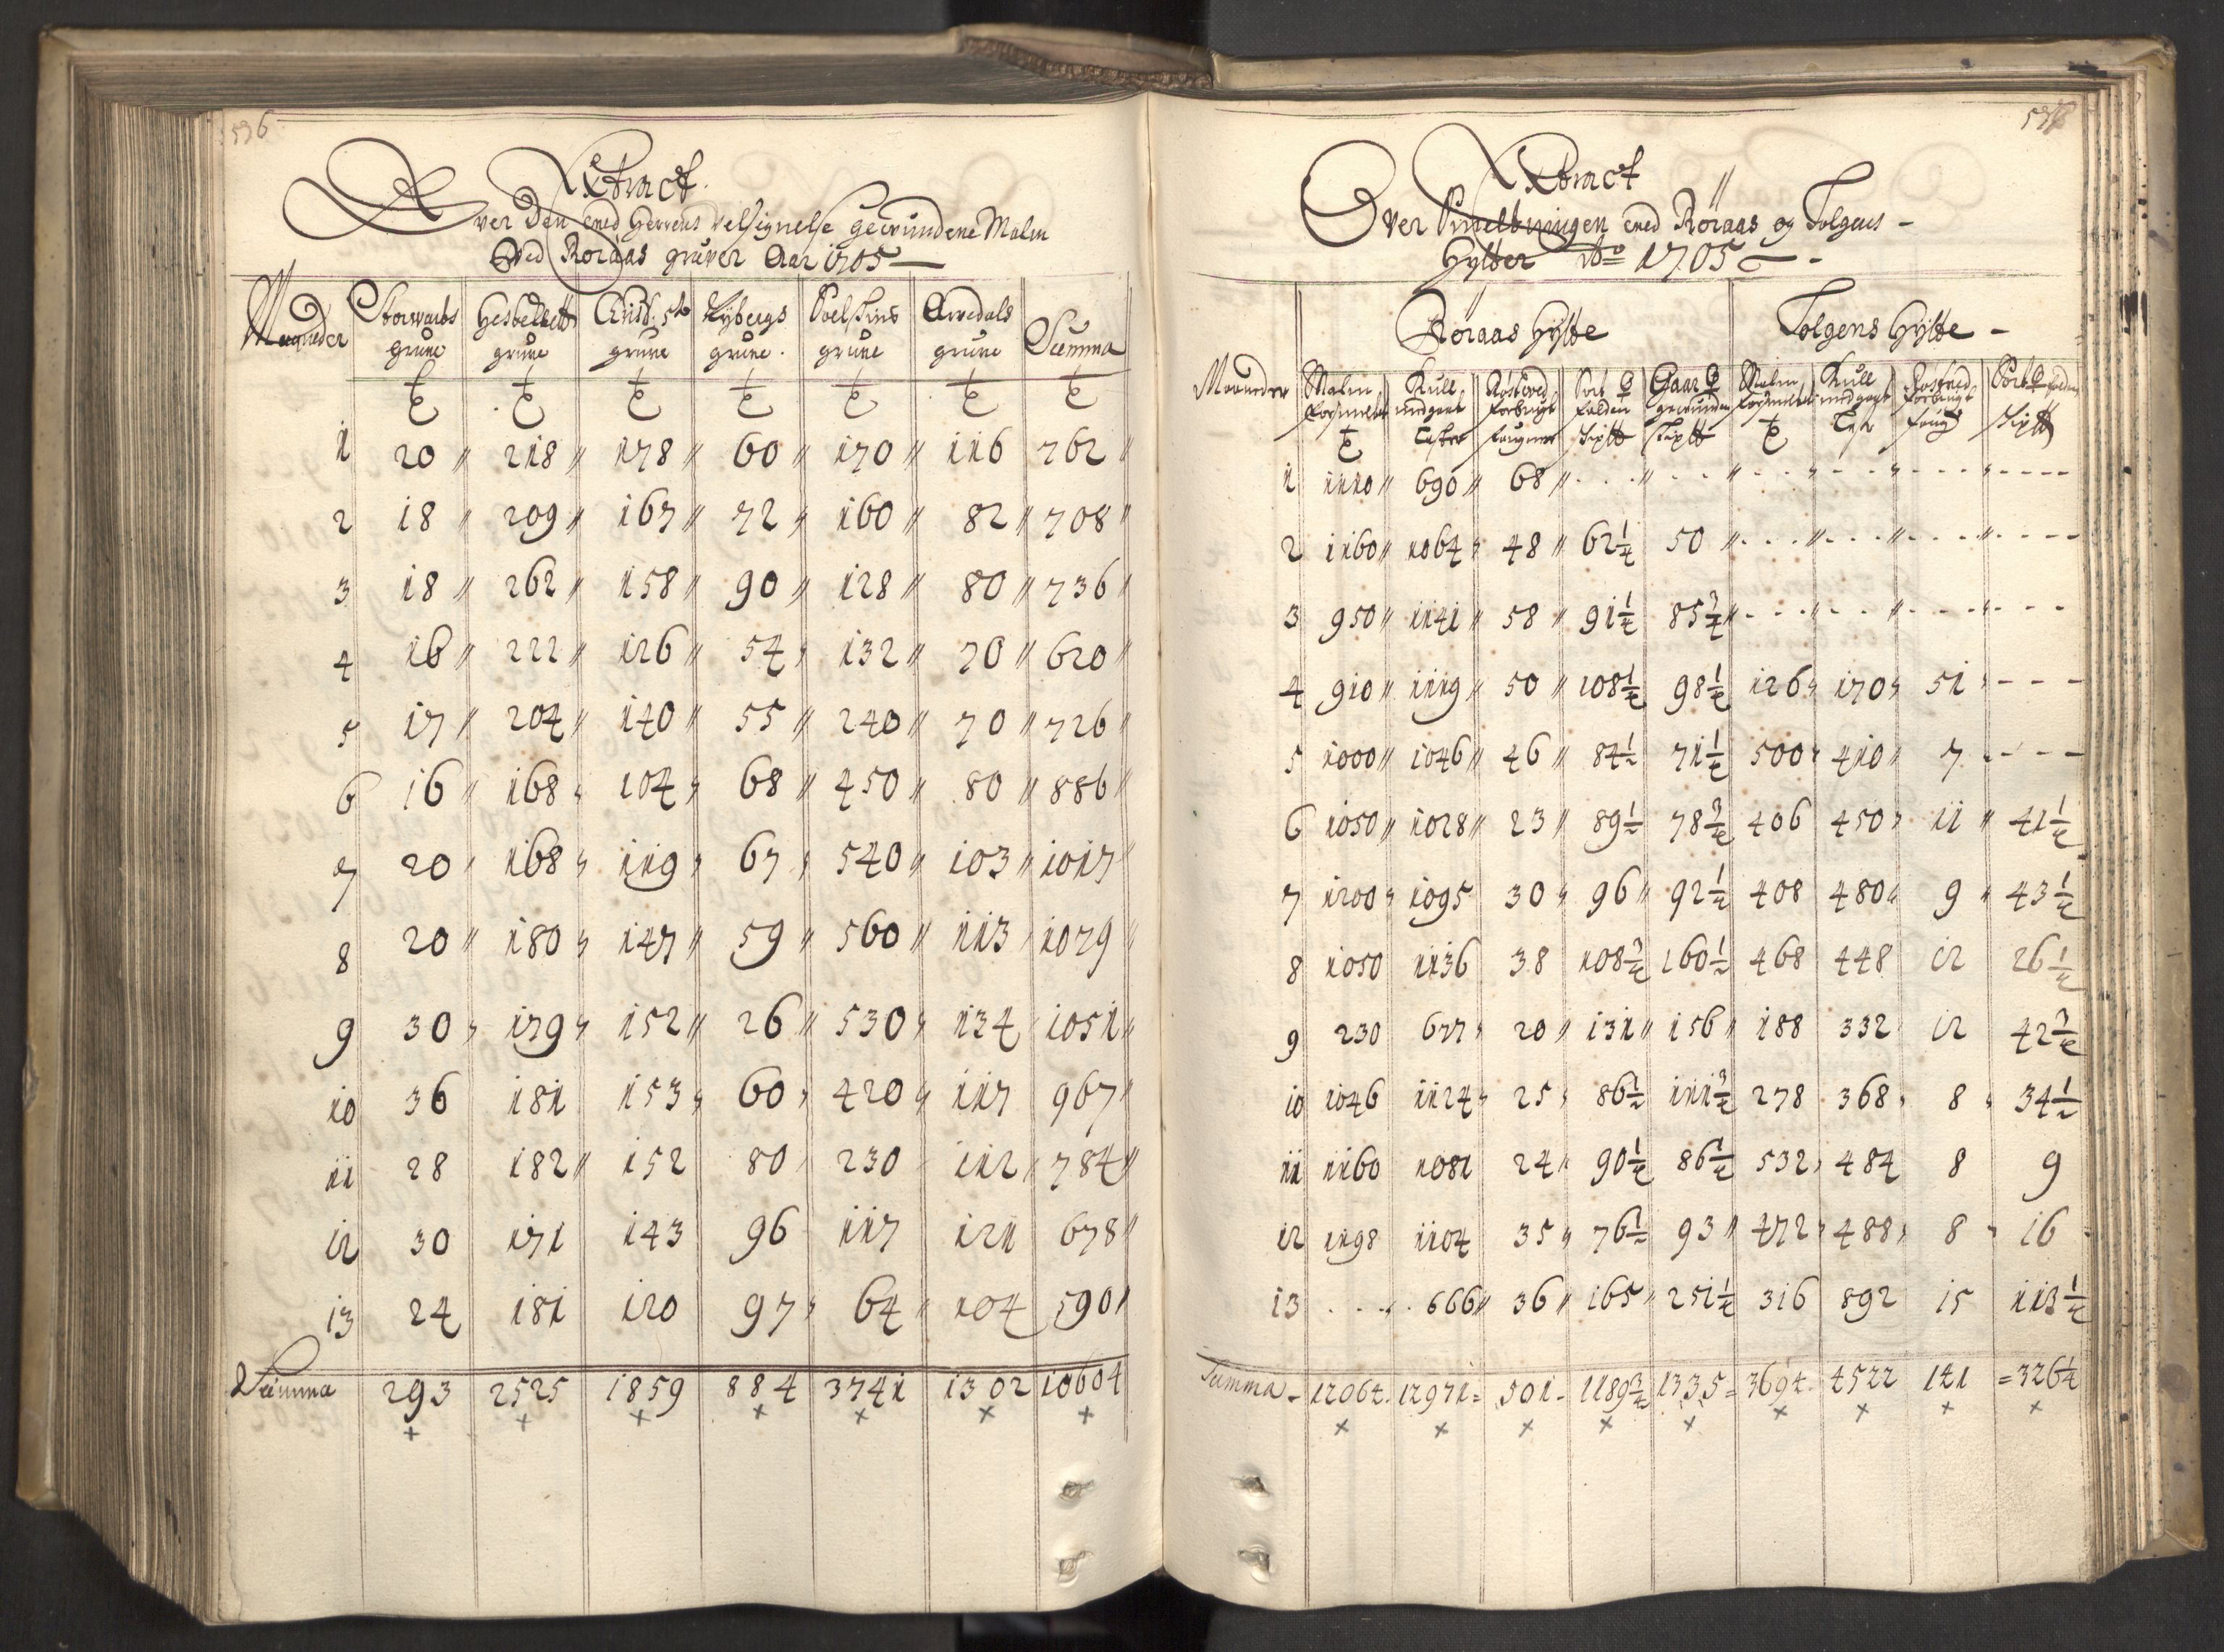 536
Extract
Over den med Herrens velsignelse gewundene Malm
Ved Röraas gruver Aar 1705
Maaneder Storwarts gruve Hesteklett gruve Christ. 5te gruve Nybergs gruve gruve Arvedals gruve Summa
1 20 218 178 60 170 116 762
2 18 209 167 72 160 82 708
3 18 262 158 90 128 80 736
4 16 222 126 54 132 70 620
5 17 204 140 55 240 70 726
6 16 168 104 68 450 80 886
7 20 168 119 67 540 103 1017
8 20 180 147 59 560 113 1079
9 30 179 152 26 530 134 1051
10 36 181 153 60 420 117 967
11 28 182 152 80 230 112 784
12 30 171 143 96 117 121 678
13 24 181 120 97 64 104 590
Summa 293 2525 1859 884 3741 1302 10604
537
Extract
Over Smeltningen med Röraas og Tolgens
Hytter Ao 1705
Röraas Hytte Tolgens Hytte
Maaneder Malm Kull Gaar Malm Kull
1 1110 690 68
2 1160 1064 48 62 1/4 50
3 950 1141 58 91 1/4 85 3/4
4 910 1119 50 108 1/2 98 1/2 126 170 51
5 1000 1046 46 84 1/2 71 1/2 500 410 7
6 1050 1028 23 89 1/2 78 3/4 406 450 11 41 1/2
7 1200 1095 30 96 92 1/2 408 480 9 43 1/2
8 1050 1136 38 108 3/4 160 1/2 468 448 12 26 1/2
9 230 677 20 131 156 188 332 12 42 3/4
10 1046 1124 25 86 1/2 111 3/4 278 368 8 34 1/2
11 1160 1081 24 90 1/2 86 1/2 532 484 8 9
12 1198 1104 35 76 1/2 93 472 488 8 16
13 666 36 165 251 1/4 316 892 15 113 1/2
Summa 12064 12971 501 1189 3/4 1335 3694 4522 141 326 1/4